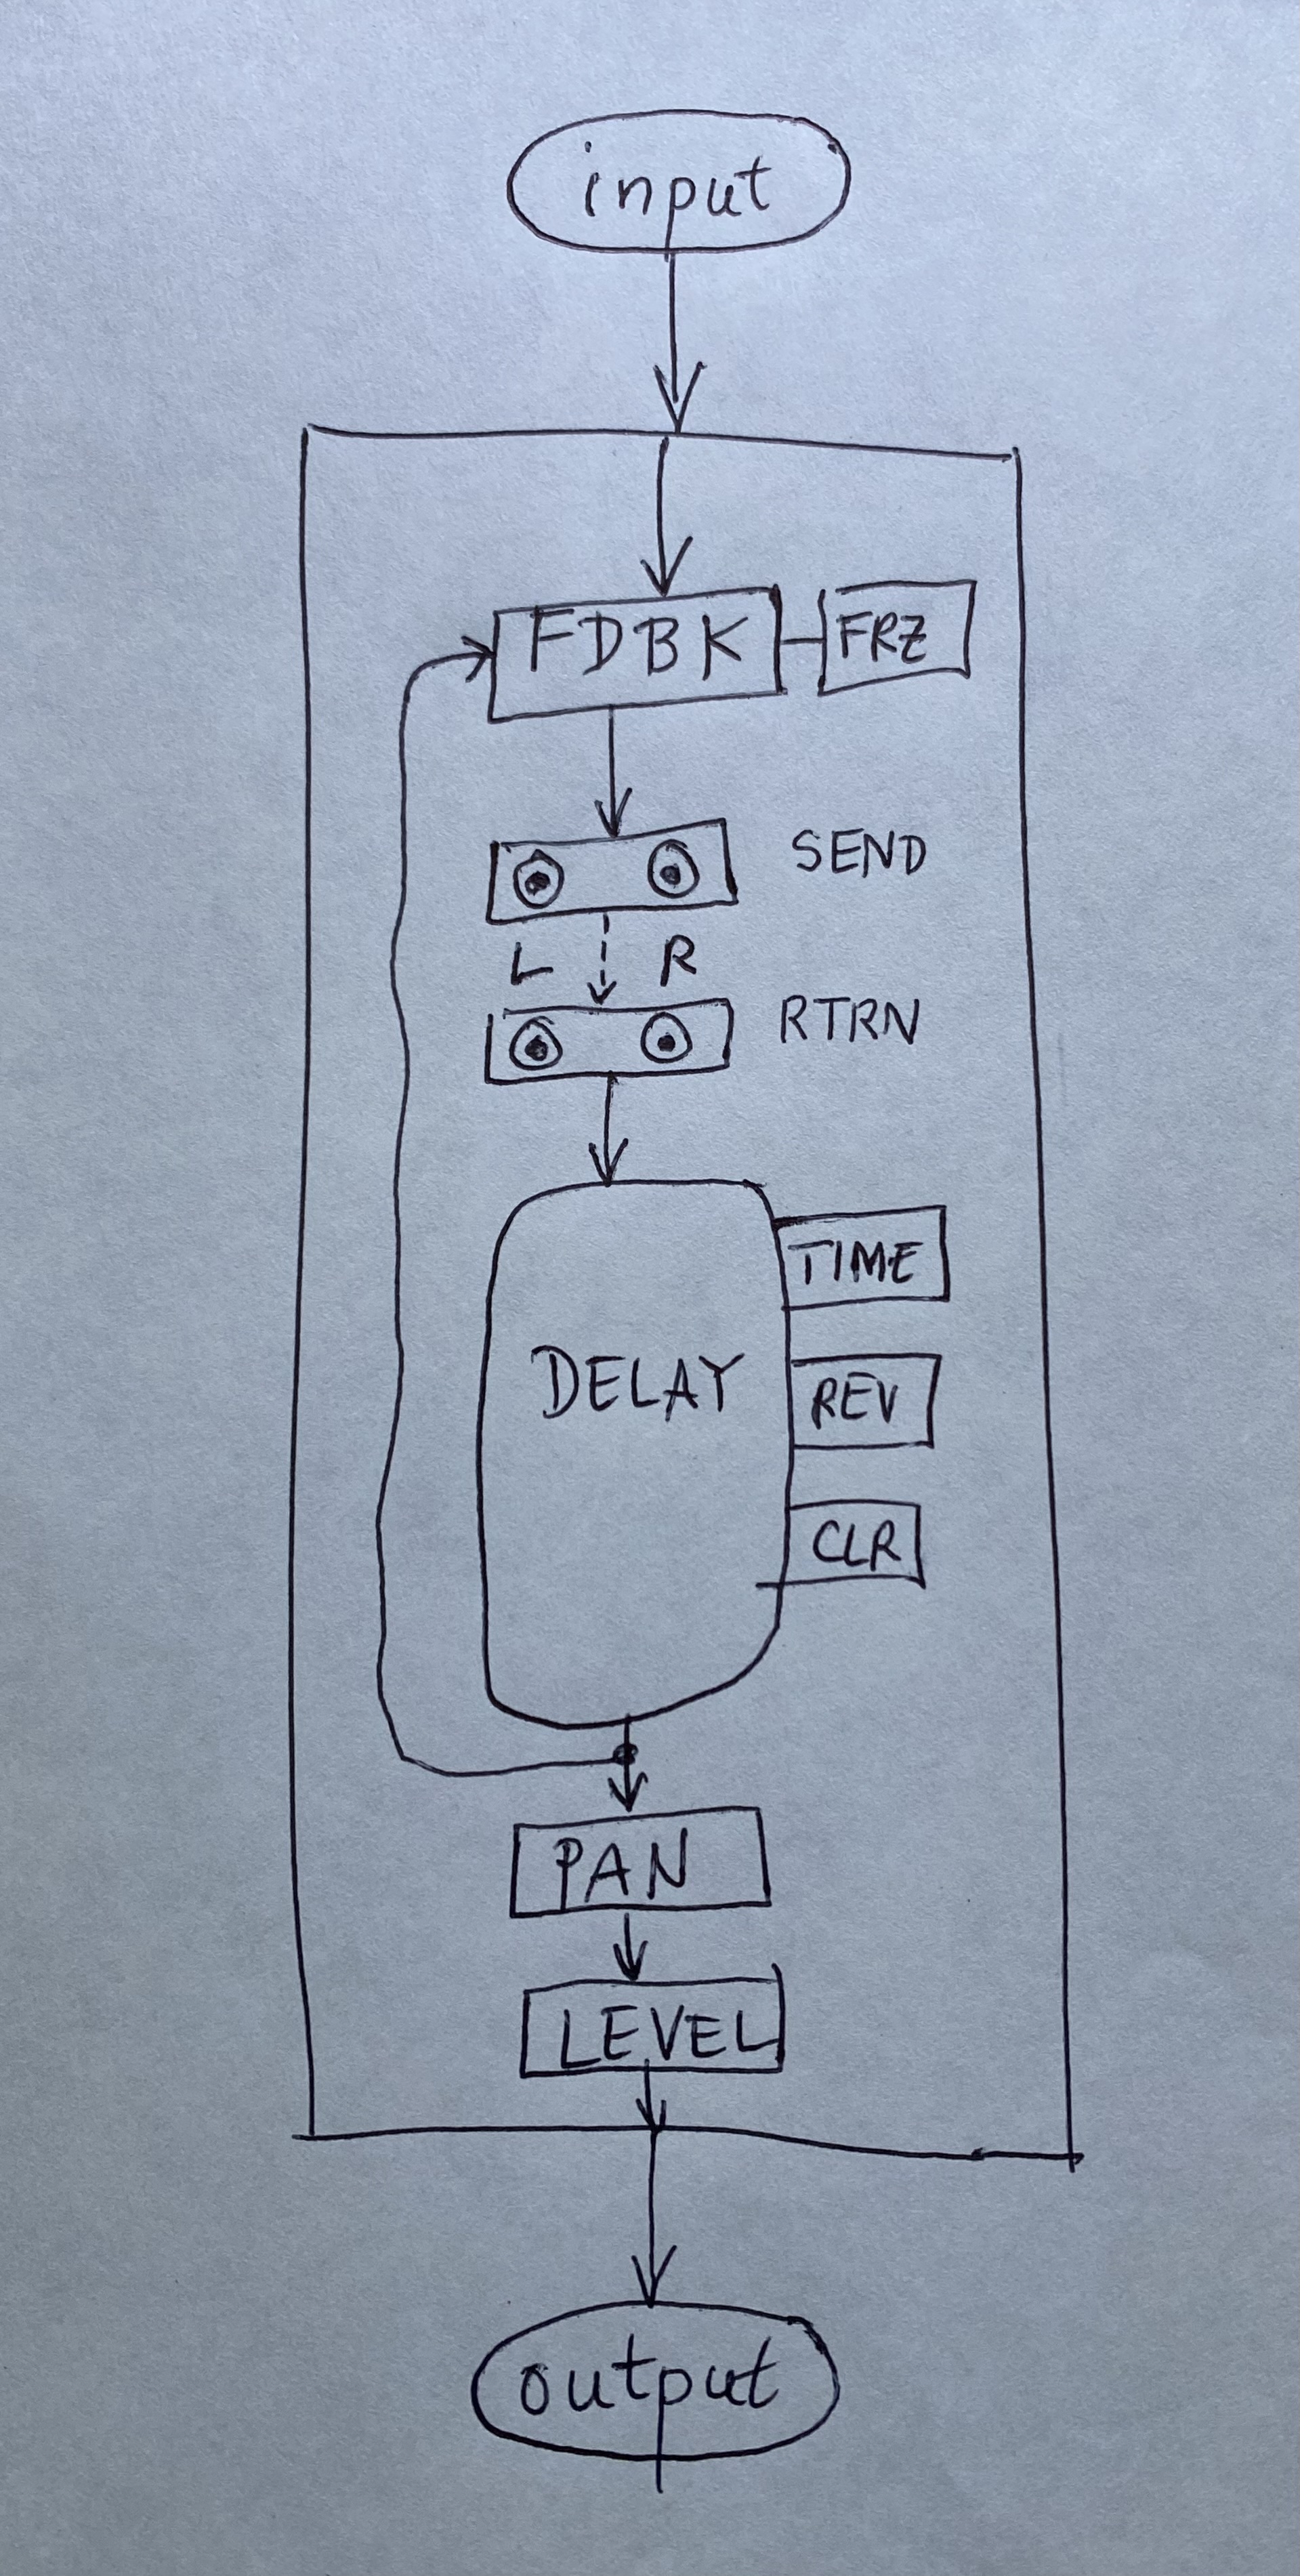 input
FDBK FRZ
SEND
L R
RTRN
TIME
DELAY
REV
CLR
PAN
LEVEL
output